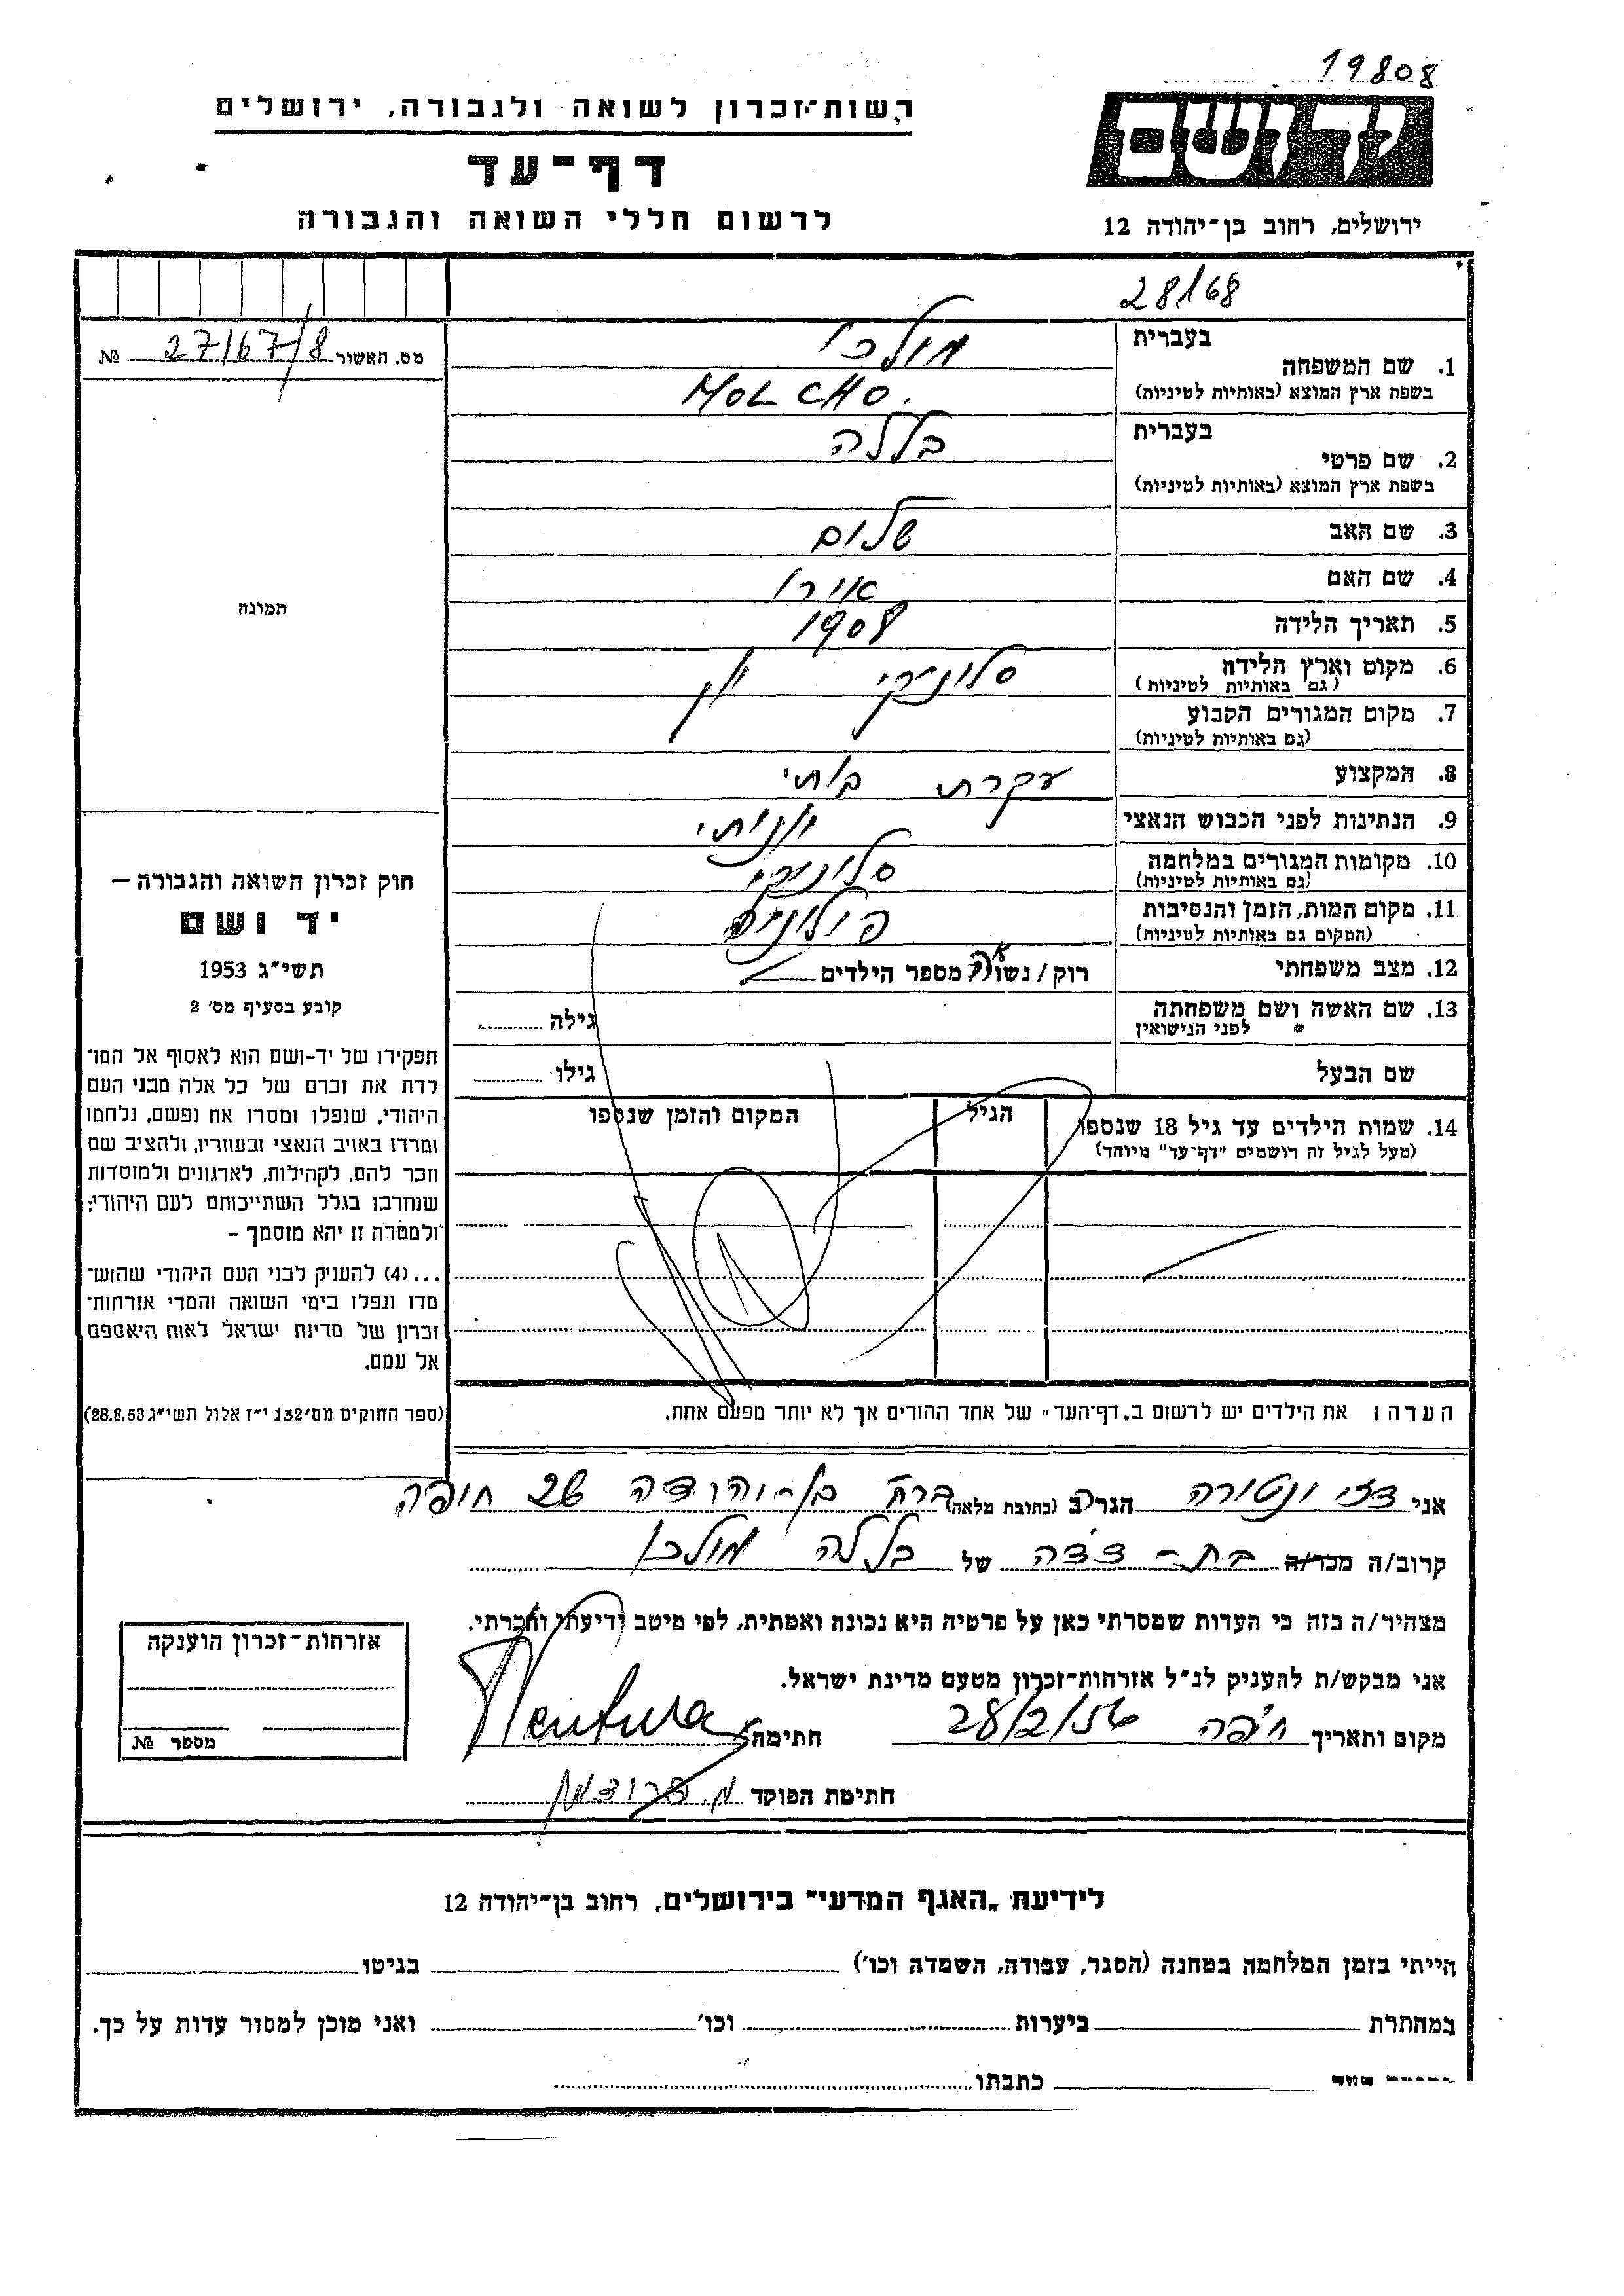 19808
רשות־זכרון לשואה ולגבורה, ירושלים
יד ושם
דף־עד
לרשום חללי השואה והגבורה
ירושלים, רחוב בן־יהודה 12
28/68
מס. האשור 27/67/8 №
בעברית מולכו
1. שם המשפחה
בשפת ארץ המוצא (באותיות לטיניות) MOLCHO.
בעברית בללה
2. שם פרטי
בשפת ארץ המוצא (באותיות לטיניות)
3. שם האב שלום
4. שם האם אורו
5. תאריך הלידה 1908
6. מקום וארץ הלידה סלוניקי יון
(גם באותיות לטיניות)
7. מקום המגורים הקבוע
(גם באותיות לטיניות)
8. המקצוע עקרת ביתי
9. הנתינות לפני הכבוש הנאצי יונותי
10. מקומות המגורים במלחמה סלוניקי
(גם באותיות לטיניות)
11. מקום המות, הזמן והנסיבות
(המקום גם באותיות לטיניות)
12. מצב משפחתי רוק/נשוי מספר הילדים
13. שם האשה ושם משפחתה
לפני הנישואין גילה
שם הבעל גילו
14. שמות הילדים עד גיל 18 שנספו הגיל המקום והזמן שנספו
(מעל לגיל זה רושמים "דף־עד" מיוחד)
הערה: את הילדים יש לרשום ב„דף־העד" של אחד ההורים אך לא יותר מפעם אחת.
תמונה
חוק זכרון השואה והגבורה —
יד ושם
תשי"ג 1953
קובע בסעיף מס' 2
תפקידו של יד-ושם הוא לאסוף אל המו־
לדת את זכרם של כל אלה מבני העם
היהודי, שנפלו ומסרו את נפשם, נלחמו
ומרדו באויב הנאצי ובעוזריו, ולהציב שם
וזכר להם, לקהילות, לארגונים ולמוסדות
שנחרבו בגלל השתייכותם לעם היהודי;
ולמטרה זו יהא מוסמך –
...(4) להעניק לבני העם היהודי שהוש־
מדו ונפלו בימי השואה והמרי אזרחות־
זכרון של מדינת ישראל לאות היאספם
אל עמם.
(ספר החוקים מס' 132 י"ז אלול תשי"ג 28.8.53)
אני דזי ונטורה הגר/ה ב (כתובת מלאה) ברח בן-יהודה 26 חיפה
קרוב/ה מכר/ה בת- דודה של בללה מולכו
מצהיר/ה בזה כי העדות שמסרתי כאן על פרטיה היא נכונה ואמתית, לפי מיטב ידיעתי והכרתי.
אני מבקש/ת להעניק לנ"ל אזרחות־זכרון מטעם מדינת ישראל.
מקום ותאריך חיפה 28/2/56 חתימה Ventura
חתימת הפוקד
אזרחות־זכרון הוענקה
מספר №
לידיעת „האגף המדעי" בירושלים, רחוב בן־יהודה 12
הייתי בזמן המלחמה במחנה (הסגר, עבודה, השמדה וכו') בגיטו
במחתרת ביערות וכו' ואני מוכן למסור עדות על כך.
כתבתו